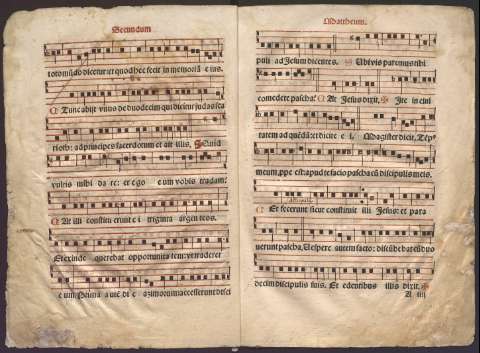 Secundum
toto mũdo dicetur et quod hec fecit in memoriã eius.
Tunc abijt vnus de duodecim qui dicitur judas sca
rioth: ad principes sacerdotum et ait illis, Quid
vultis mihi dare: et ego eum vobis tradam:
At illi constituerunt ei triginta argenteos.
Et exinde querebat opportunitatem: vt traderet
eum. Prima autem die azimorum accesserunt disci
Mattheum.
puli ad Jesum dicentes. Ubi vis paremus tibi
comedere pascha? At Jesus dixit, Ite in ciui
tatem ad quẽdã: et dicite ei, Magister dicit, Tẽp
meum ppe est: apud te facio pascha cũ discipulis meis.
Et fecerunt sicut constituit illi Jesus: et para
uerunt pascha, Vespere autem facto: discũbebat cũ duo
decim discipulis suis. Et edentibus illis dixit.
A iiij